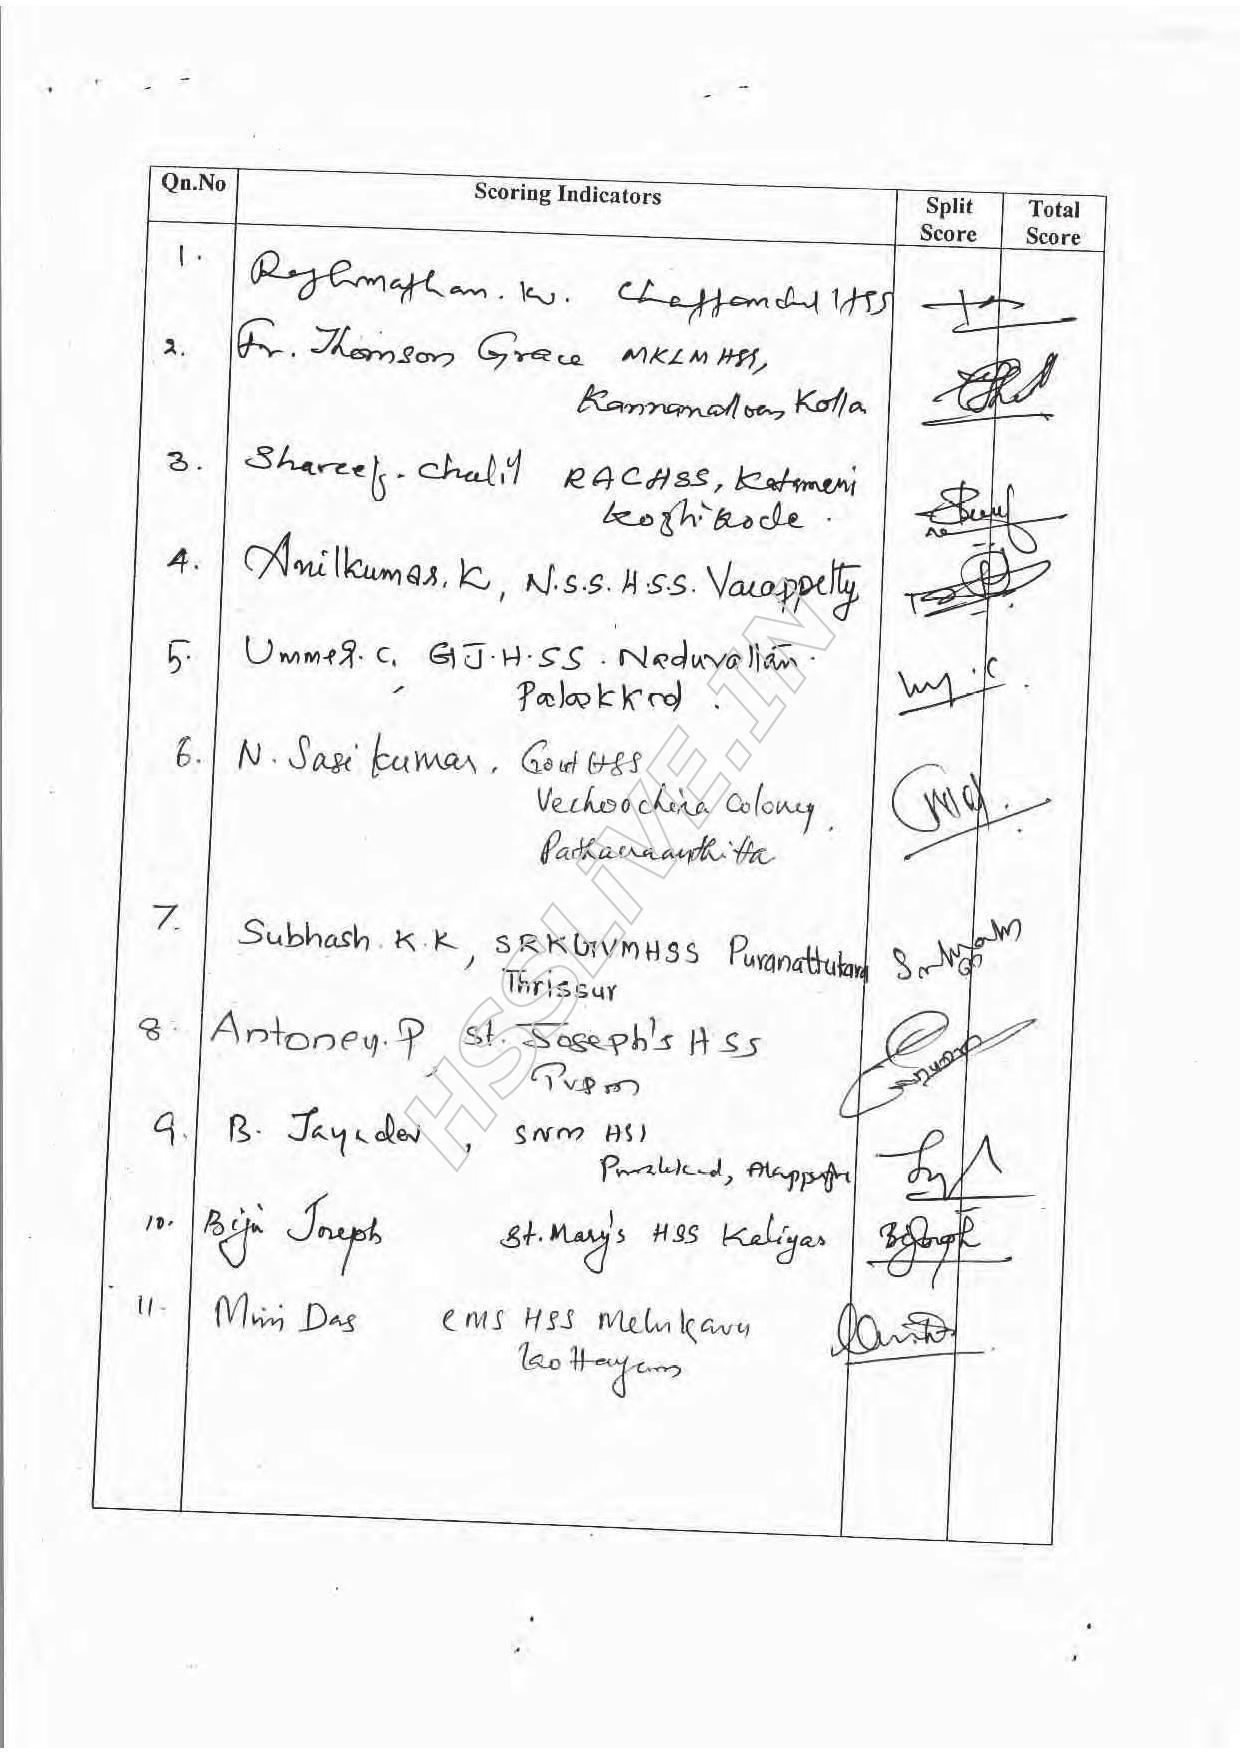 Qn.No Scoring Indicators Split Score Total Score
1. Reghunathan. K. HSS
2. Fr. Thomson Grace MKLM HSS,
Kannanalloor, Kolla
3. Shareef. Chalil RACHSS, Katameri
Kozhikode.
4. Anilkumar. K, N.S.S. H.S.S. Varappetty
5. Ummer. C. GJ.H.SS. Naduvattam.
Palakkad.
6. N. Sasi kumar, Govt HSS
Vechoochira Colony,
Pathanamthitta
7. Subhash K.K, SRKGVMHSS Puranattukara
Thrissur
8. Antoney. P, St. Joseph's HSS
Tvpm
9. B. Jayadev, SNM HSS
Purakkad, Alappuzha
10. Biju Joseph St. Mary's HSS Kaliyar
11. Mini Das CMS HSS Melukavu
Kottayam
HSSLiVE.IN